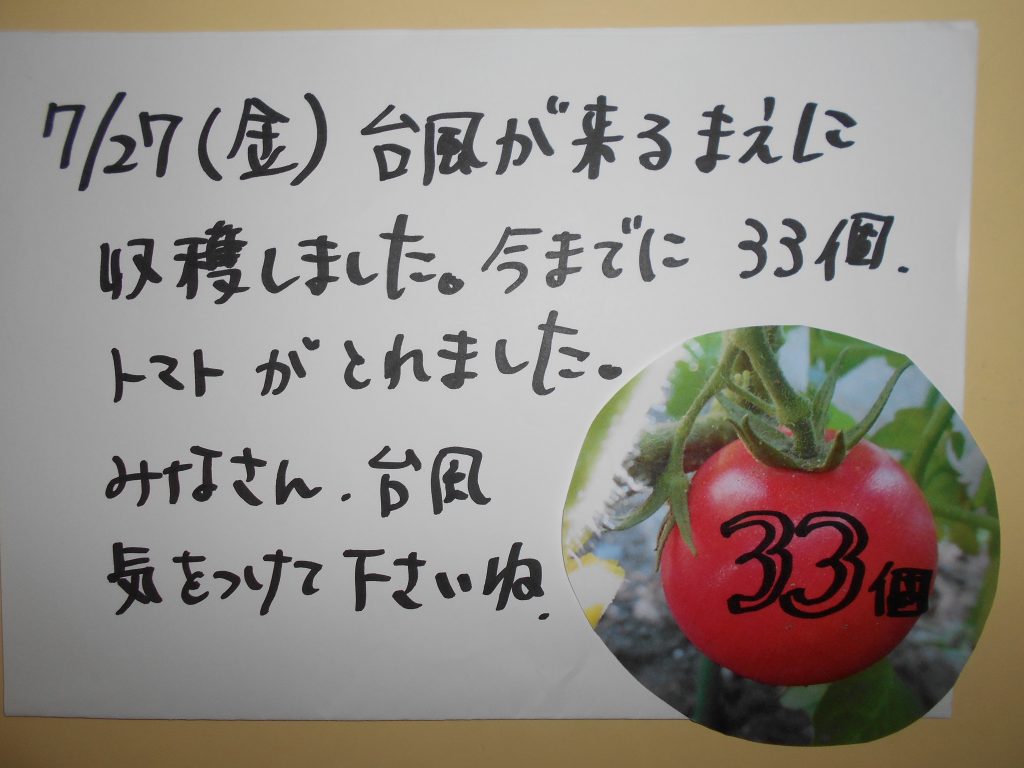 7/27(金)台風が来るまえに
収穫しました。今までに 33個.
トマトがとれました。
みなさん.台風
気をつけて下さいね.
33個